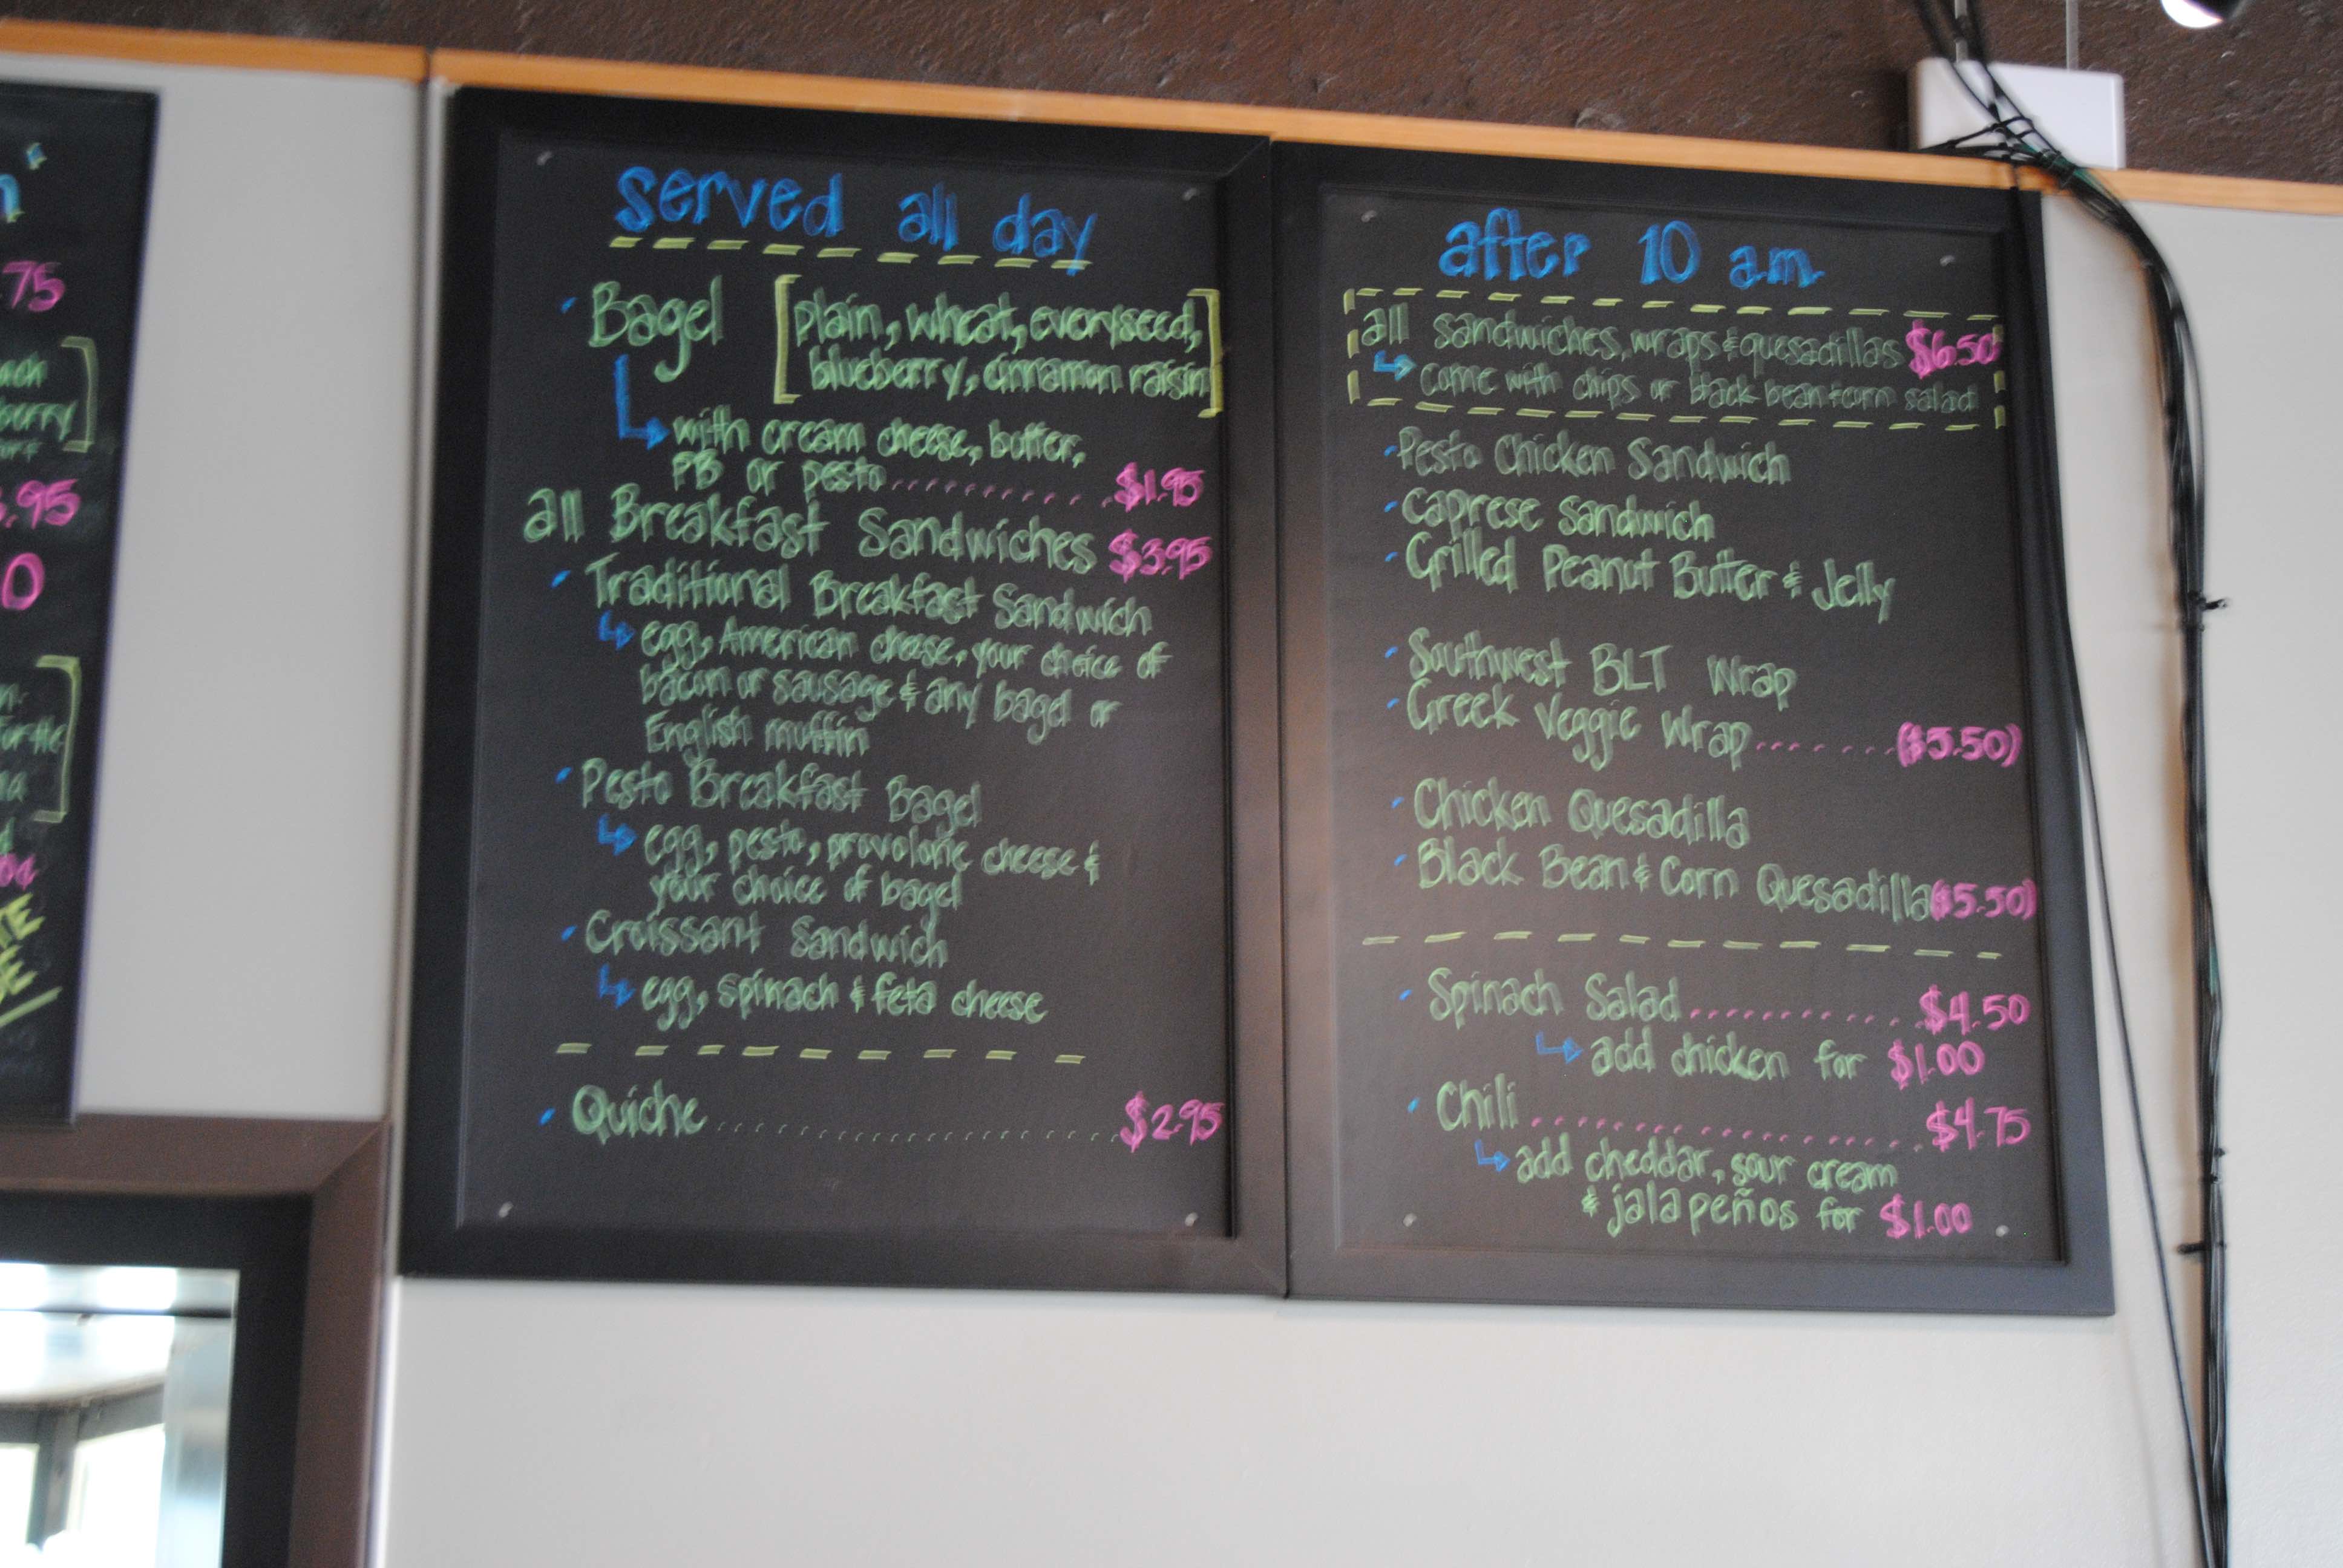 served all day
Bagel [plain, wheat, everyseed,
blueberry, cinnamon raisin]
with cream cheese, butter,
PB or pesto.............$1.95
all Breakfast Sandwiches $3.95
Traditional Breakfast Sandwich
egg, American cheese, your choice of
bacon or sausage & any bagel or
English muffin
Pesto Breakfast Bagel
egg, pesto, provolone cheese &
your choice of bagel
Croissant Sandwich
egg, spinach & feta cheese
Quiche........................$2.95
after 10 a.m.
all sandwiches, wraps & quesadillas $6.50
come with chips or black bean & corn salad
Pesto Chicken Sandwich
caprese sandwich
Grilled Peanut Butter & Jelly
Southwest BLT Wrap
Greek Veggie Wrap.......($5.50)
Chicken Quesadilla
Black Bean & Corn Quesadilla ($5.50)
Spinach Salad............$4.50
add chicken for $1.00
Chili....................$4.75
add cheddar, sour cream
& jalapeños for $1.00
75
.95
0